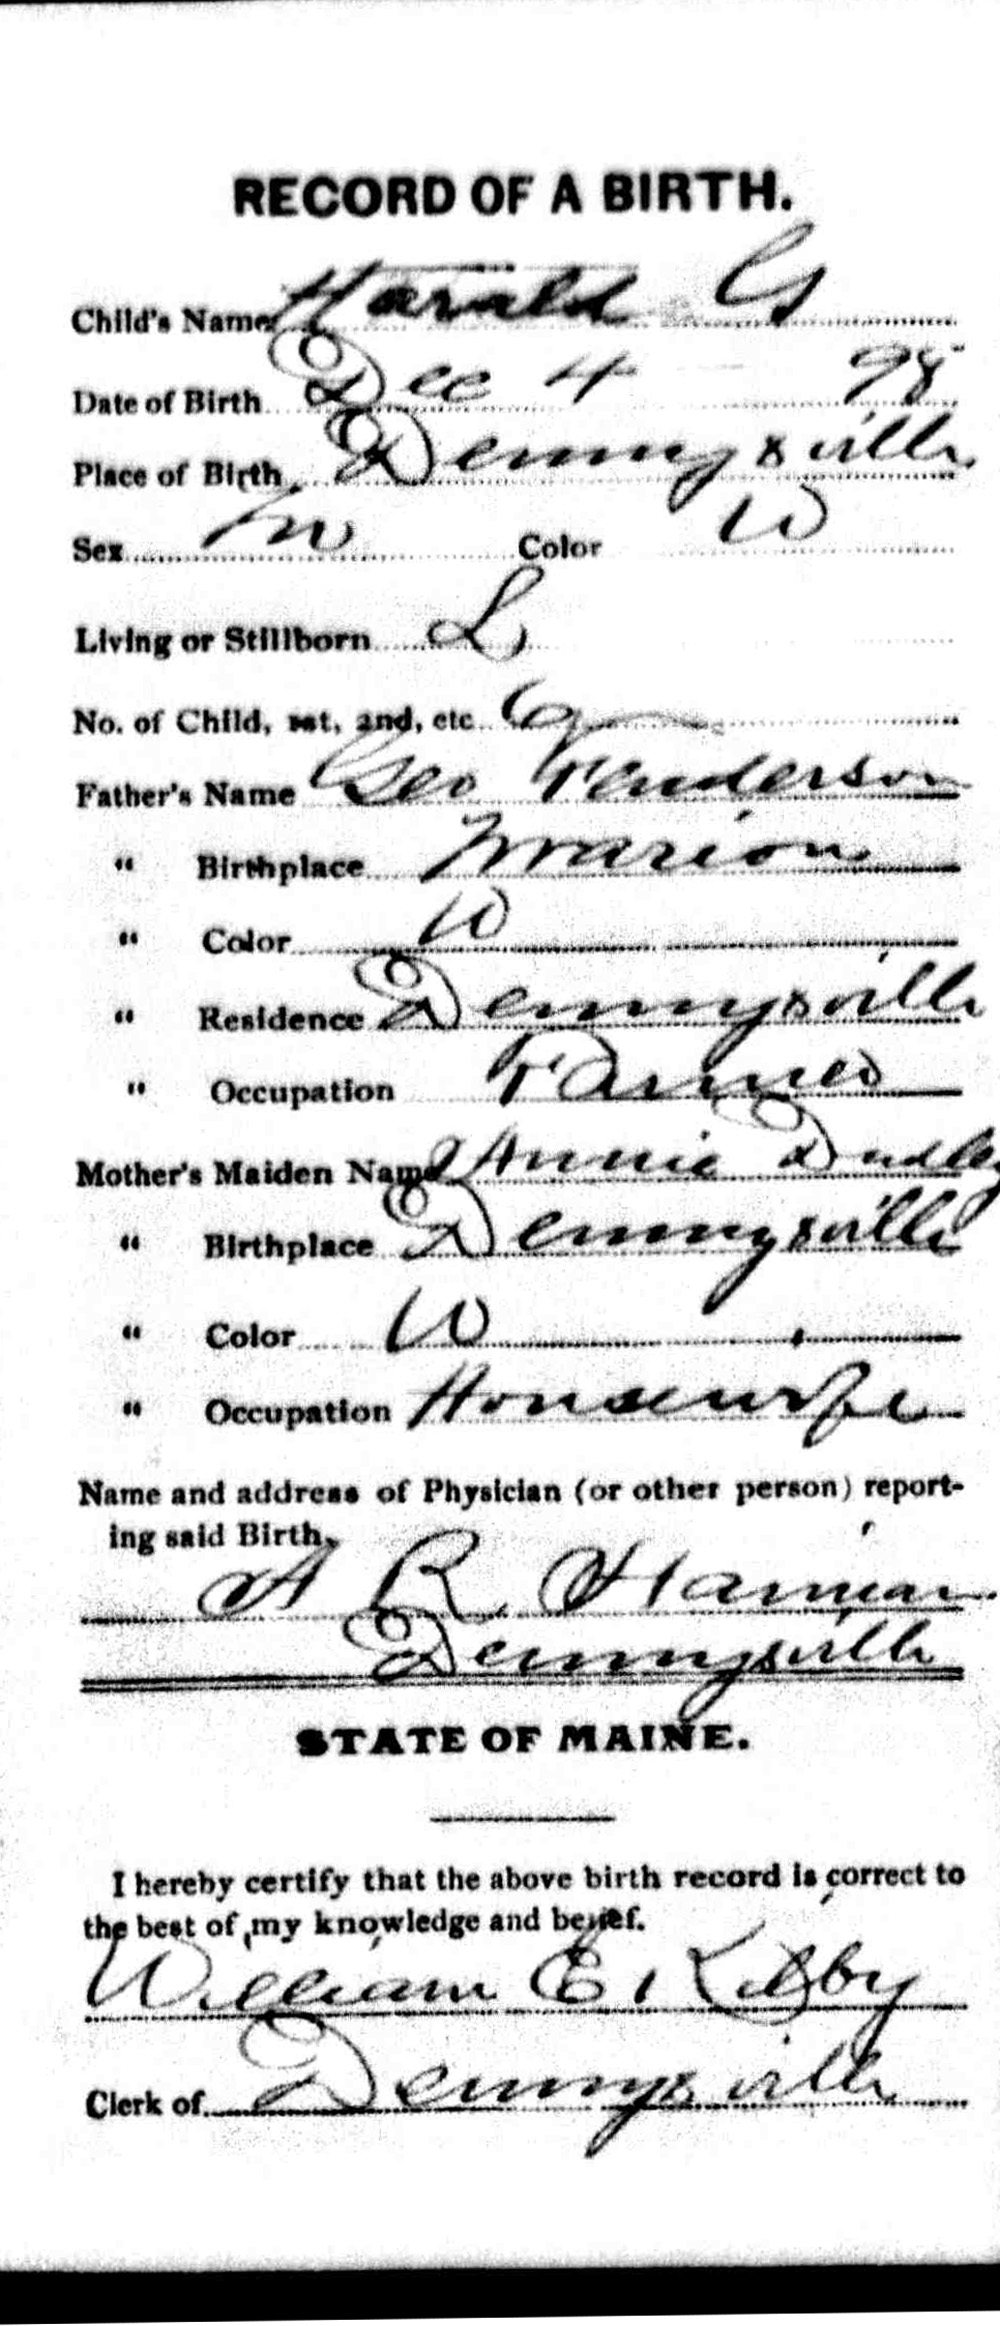 RECORD OF A BIRTH.
Child's Name Harald G
Date of Birth Dec 4 98
Place of Birth Dennysville
Sex M Color W
Living or Stillborn L
No. of Child, 1st, 2nd, etc. 6
Father's Name Geo Henderson
" Birthplace Marion
" Color W
" Residence Dennysville
" Occupation Farmer
Mother's Maiden Name Annie Dudley
" Birthplace Dennysville
" Color W
" Occupation Housewife
Name and address of Physician (or other person) report-
ing said Birth,
A R
Dennysville
STATE OF MAINE.
I hereby certify that the above birth record is correct to
the best of my knowledge and belief.
William E Kilby
Clerk of Dennysville